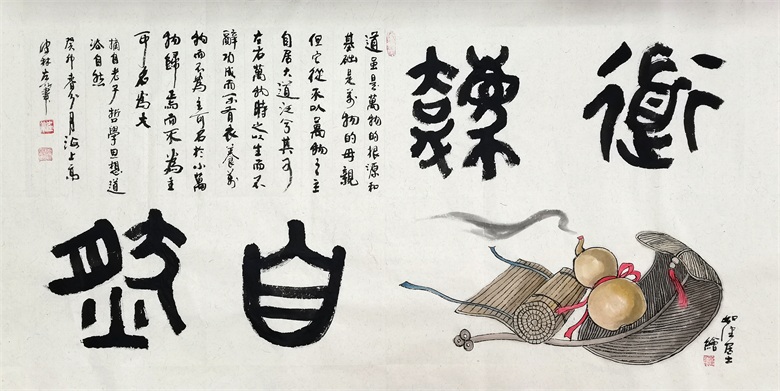 道法
自然
道虽是萬物的根源和
基础是萬物的母親
但它從不以萬物之主
自居大道泛兮其可
左右萬物時之以生而不
辭功成而不有衣養萬
物而不為主可名於小萬
物歸焉而不為主
可名為大
摘自老子哲學思想道
法自然
癸卯春分月海上高
波林左筆
居士
繪